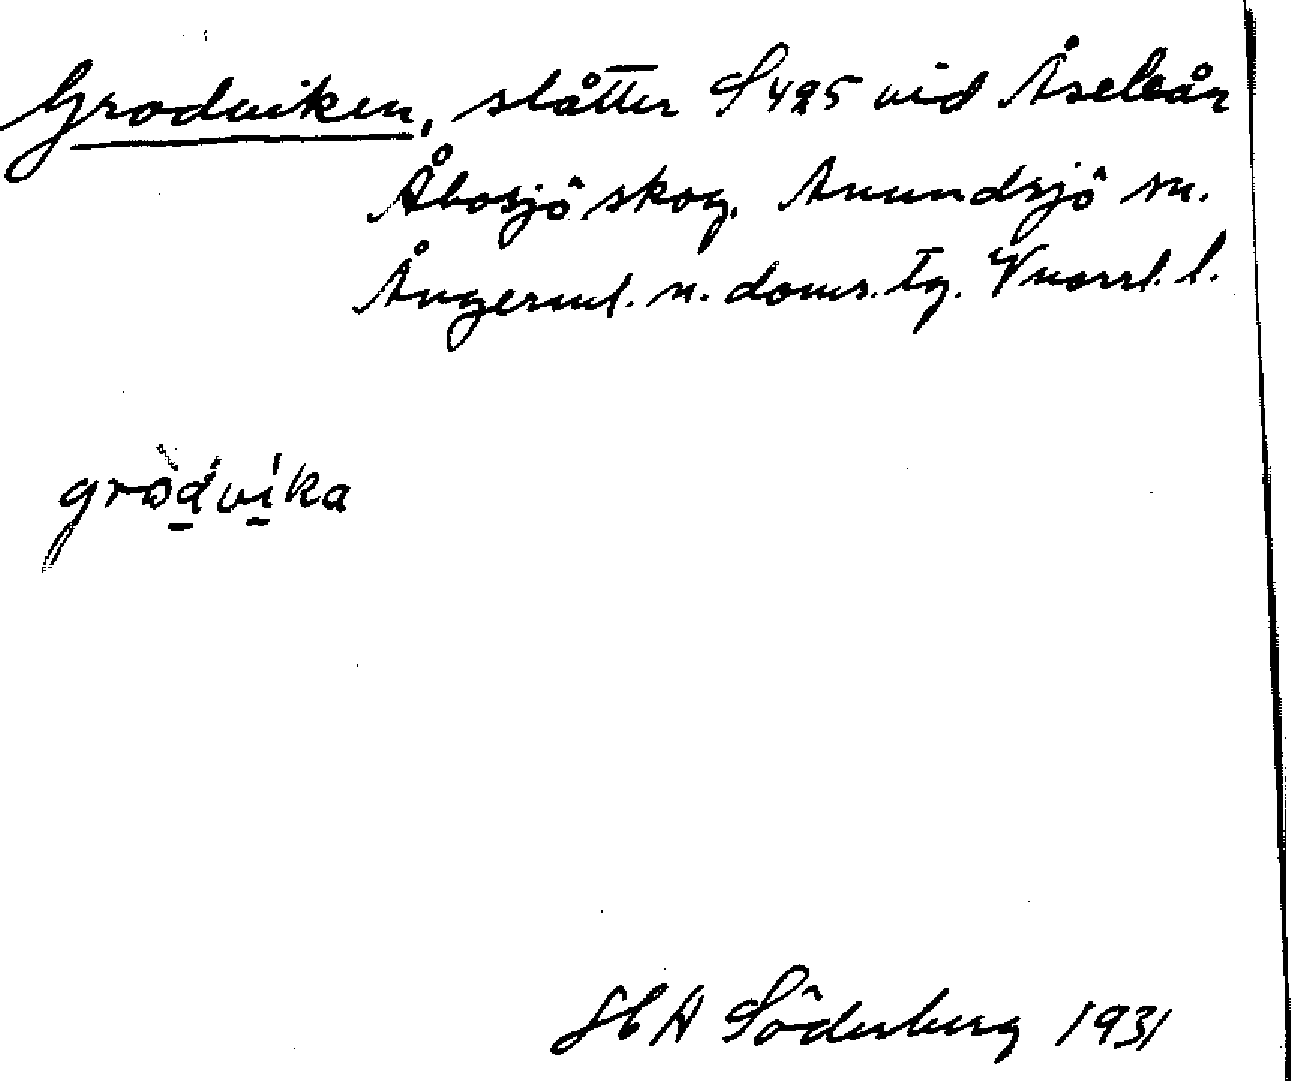 Grodviken, slåtter S 425 vid Åseleån
Åbosjö skog, Anundsjö sn.
Ångerml. n. doms. tg. Vnorrl. l.
gròdvika
H A Söderberg 1931